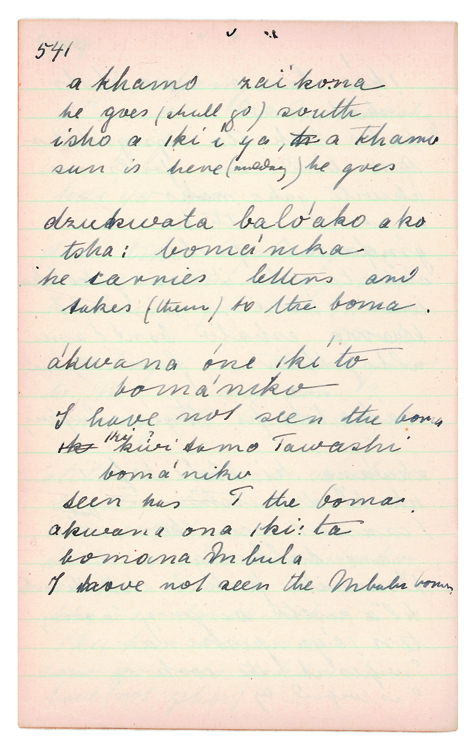 541
a khamo zaíkona
he goes (shall go) south
isho a ıkı í ya, a khamo
sun is here (midday) he goes
dzukwata balóako ako
tsha: bománika
he carries letters and
takes (them) to the boma.
ákwana óne ıkí to
bomániko
I have not seen the boma
kiwi samo Tawashi
bomániko
seen has T the boma.
akwana ona ıkı: ta
bomana Mbula
I have not seen the Mbula boma